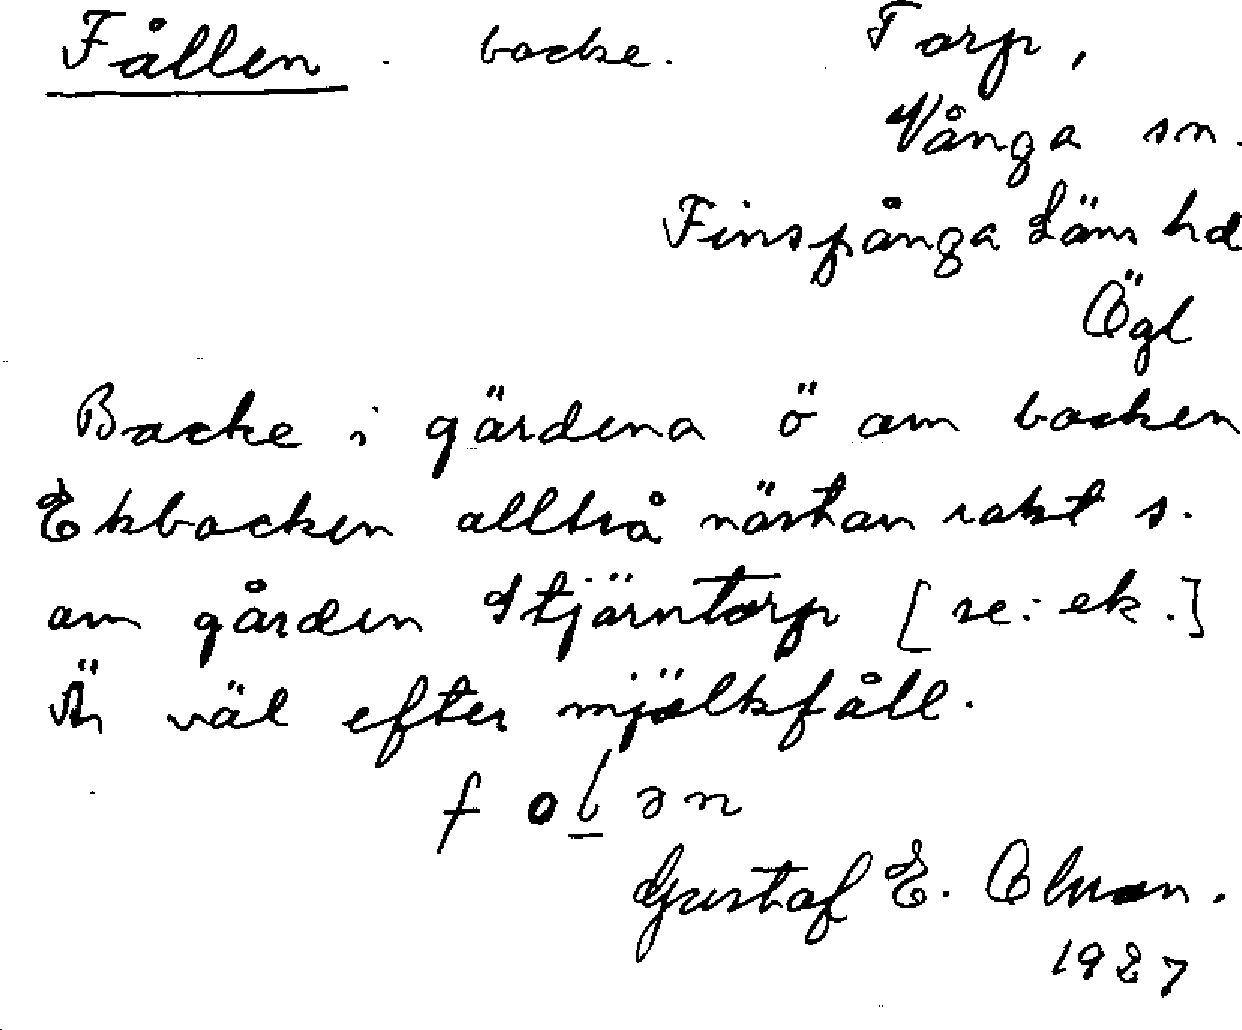 Fållen . backe. Torp,
Vånga sn.
Finspånga läns hd
Ögl
Backe i gärdena ö om backen
Ekbacken alltså nästan rakt s.
om gården Stjärntorp [se: ek.]
Är väl efter mjölkfåll.
f o l ə n
Gustaf E. Olsson.
1927